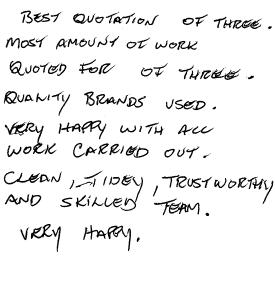 BEST QUOTATION OF THREE.
MOST AMOUNT OF WORK
QUOTED FOR OF THREE.
QUALITY BRANDS USED.
VERY HAPPY WITH ALL
WORK CARRIED OUT.
CLEAN, TIDEY, TRUSTWORTHY
AND SKILLED TEAM.
VERY HAPPY.